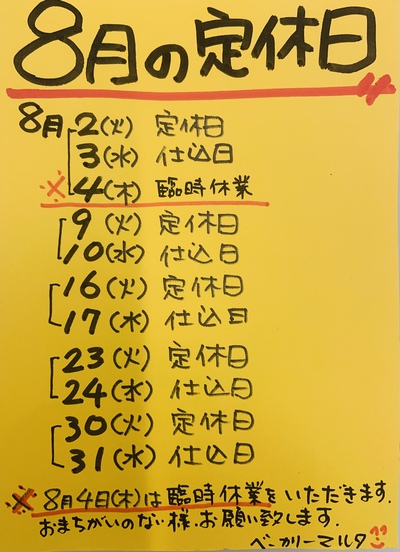 8月の定休日
8月 2(火) 定休日
3(水) 仕込日
※ 4(木) 臨時休業
9(火) 定休日
10(水) 仕込日
16(火) 定休日
17(水) 仕込日
23(火) 定休日
24(水) 仕込日
30(火) 定休日
31(水) 仕込日
※ 8月4日(木)は臨時休業をいただきます.
おまちがいのない様.お願い致します.
ベーカリーマルタ